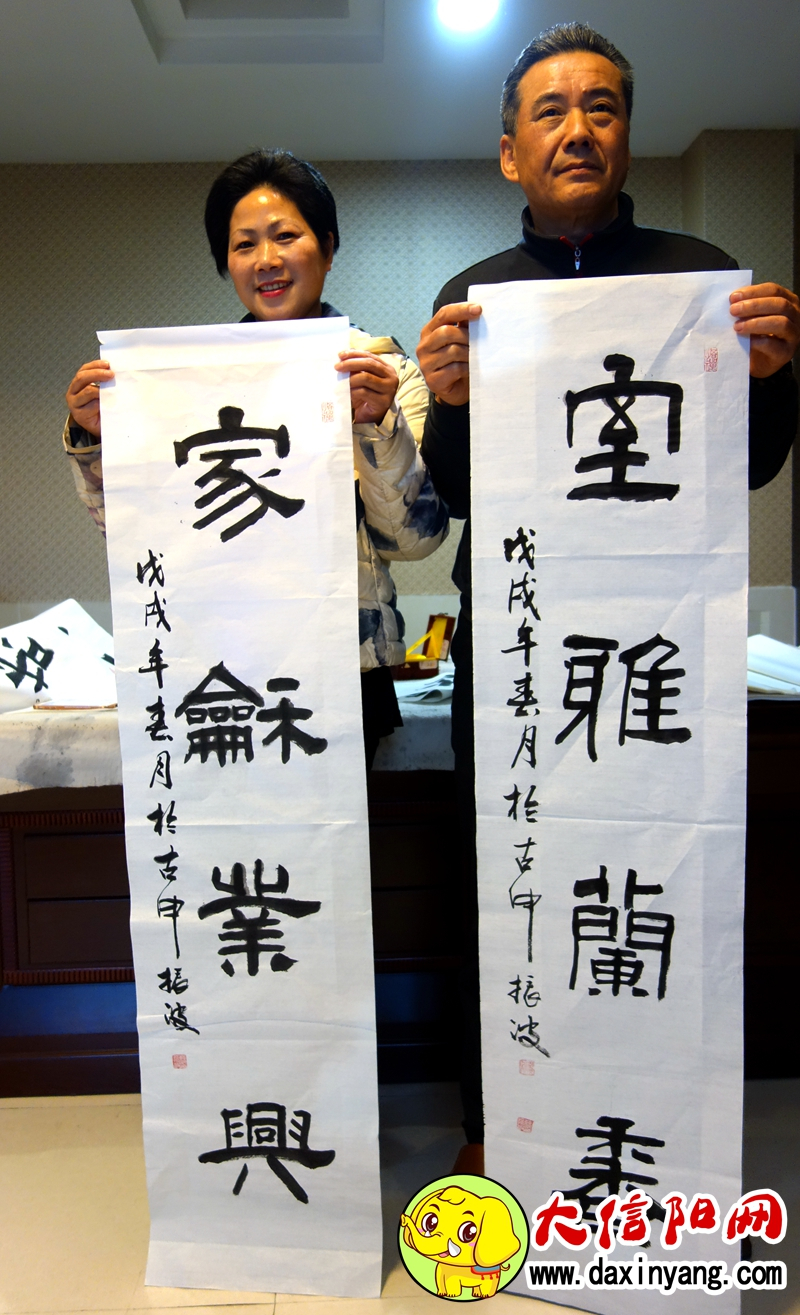 室雅蘭香
戊戌年春月於古申振波
家龢業興
戊戌年春月於古申振波
大信阳网
www.daxinyang.com